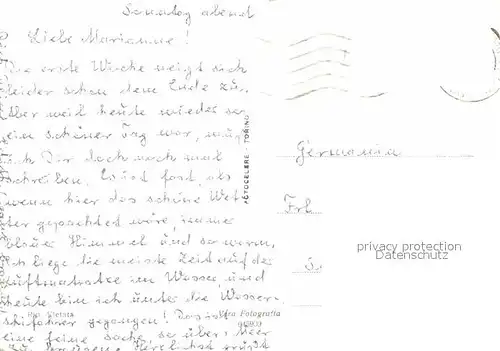 Sonntag abend
Liebe Marianne!
Die erste Woche neigt sich
leider schon dem Ende zu.
Aber weil heute wieder so
ein schöner Tag war, muß
ich Dir doch noch mal
schreiben. Es ist fast, als
wenn hier das schöne Wet-
ter gepachtet wäre, immer
blauer Himmel und so warm.
Ich liege die meiste Zeit auf der
Luftmatratze im Wasser, und
heute bin ich unter die Wasser-
skifahrer gegangen! Das ist
eine feine Sache, so übers Meer
zu Herzlichst grüßt
FOTOCELERE - TORINO
Germania
Frl.
privacy protection
Datenschutz
Vera Fotografia